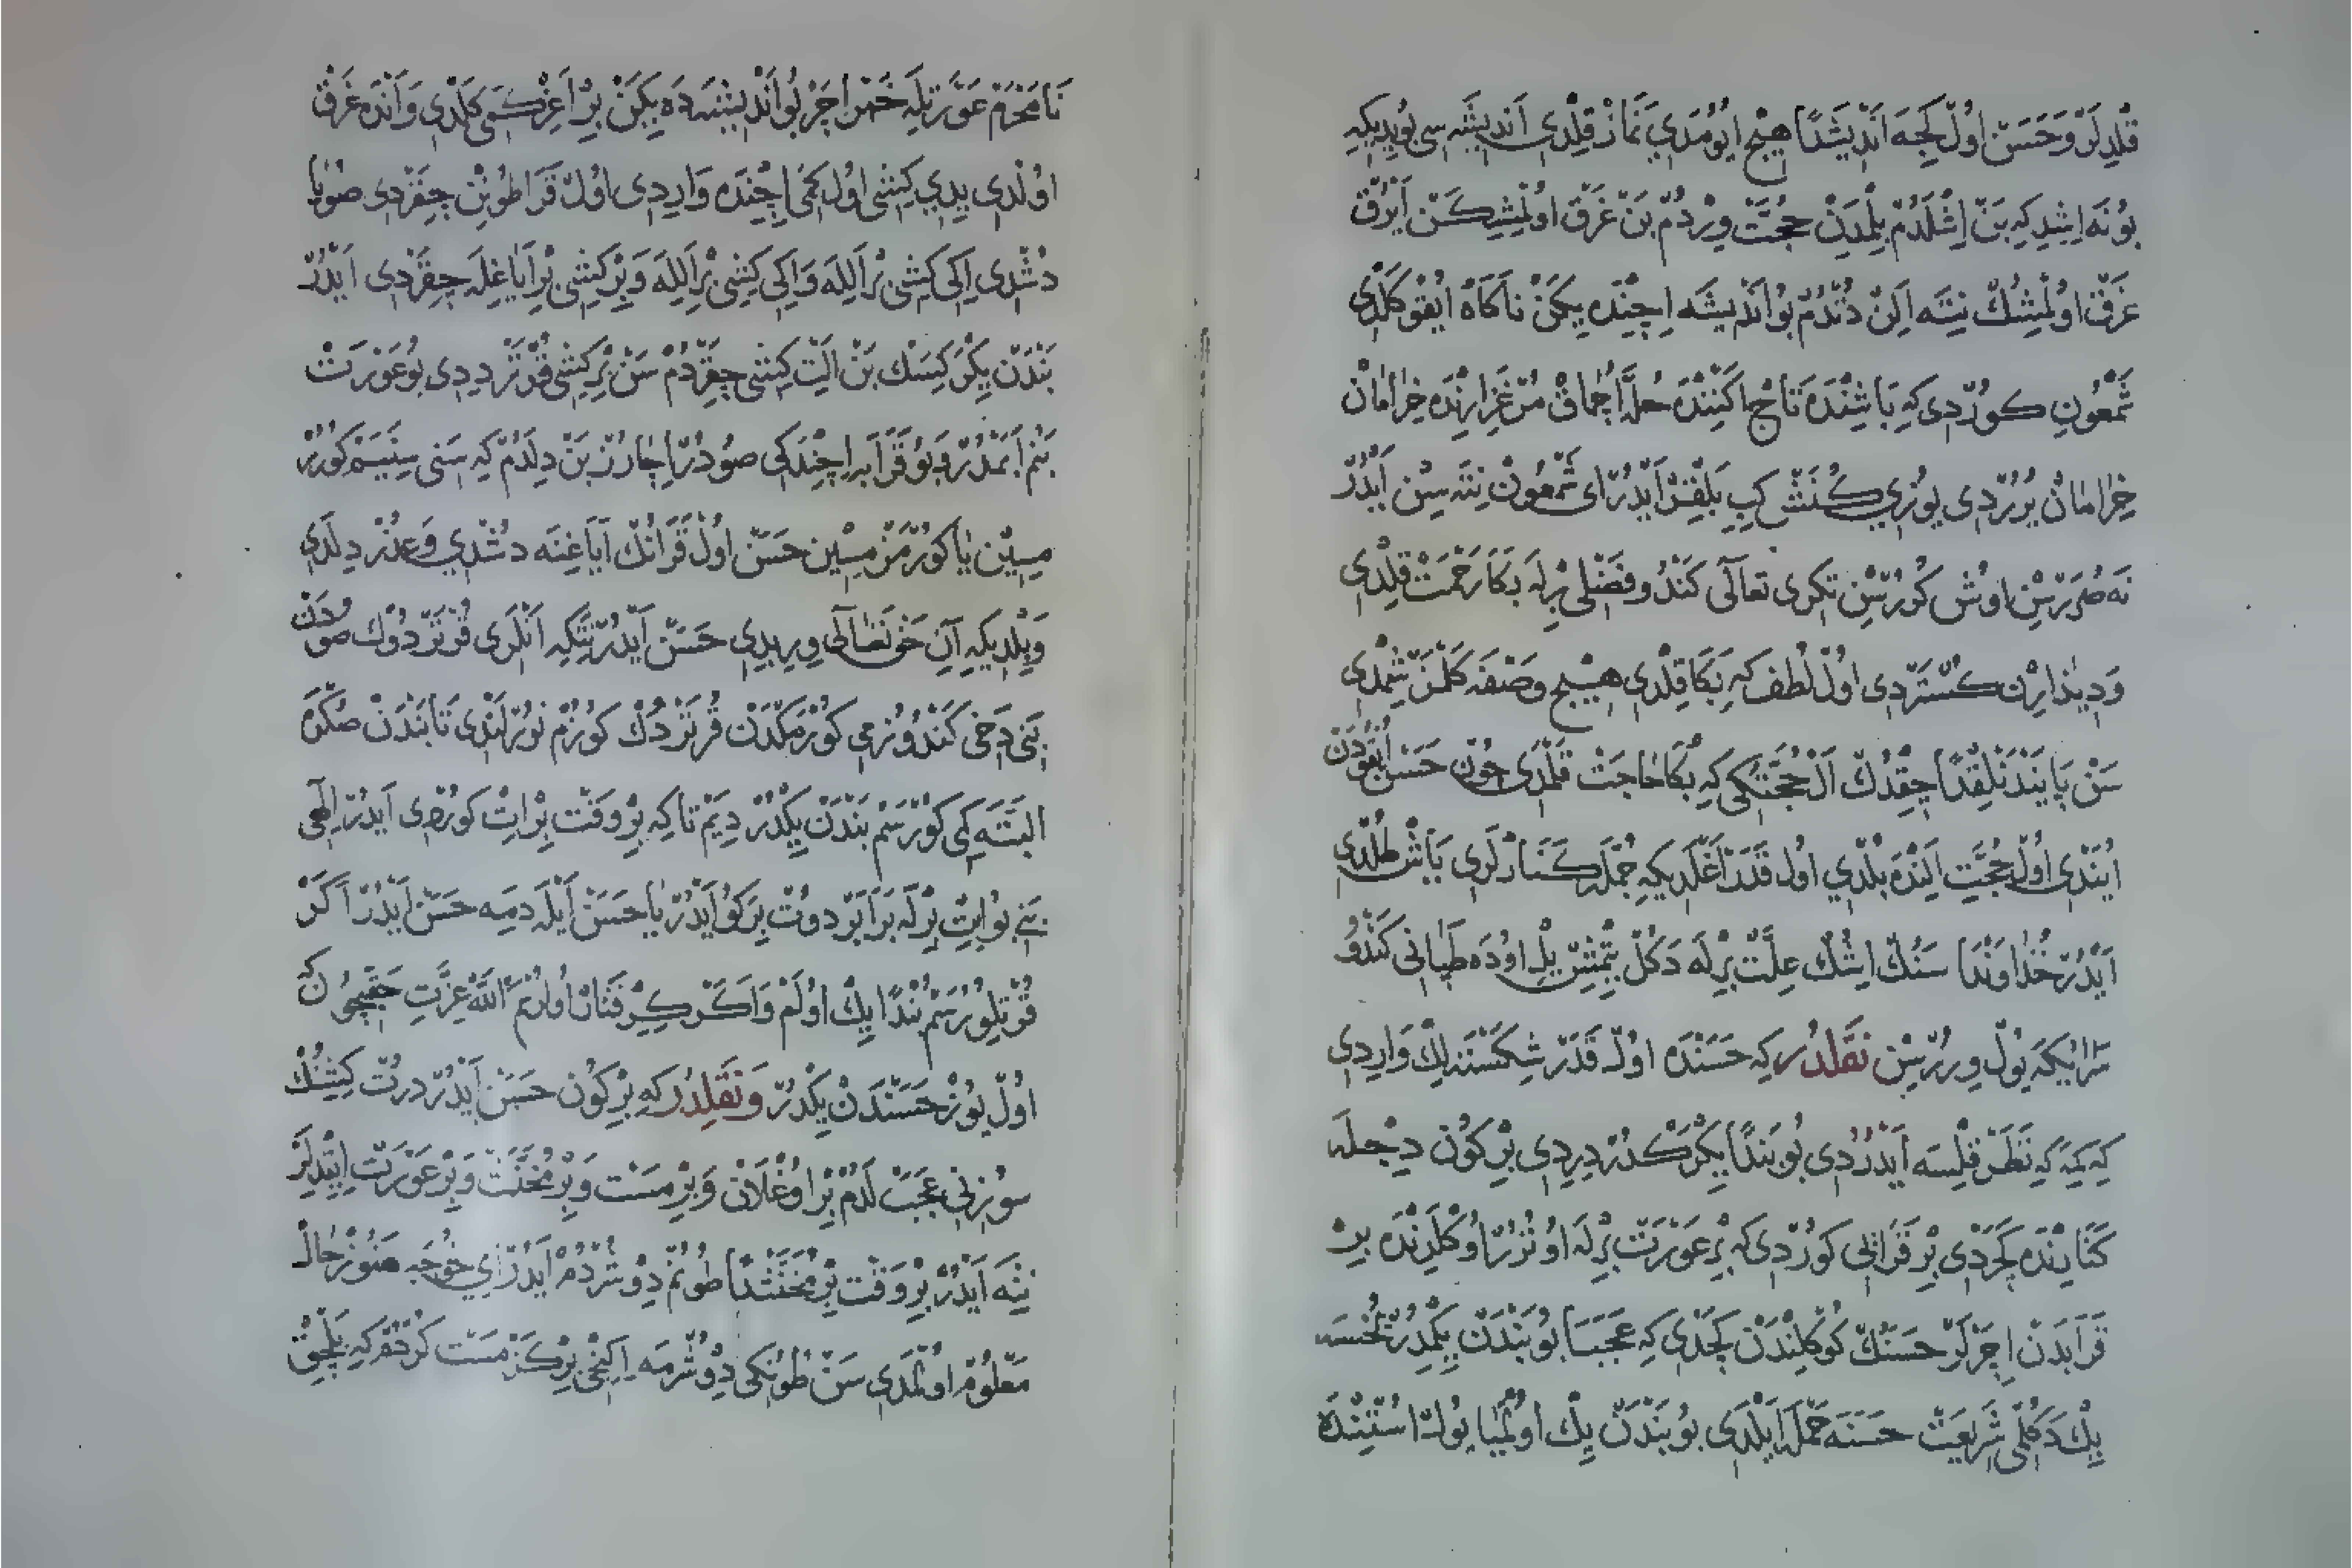 قلدلر و حسن اول كجه اندیشدا هیچ ایومدی نماز قلدی اندیشه سی بویدیكه
بونه اشدكه بن اشلدم بلمدن حجت وردم بن غرق اولمشكن ایرق
غرق اولمشك نیته الن دتدم بو اندیشه اچنده یكن ناكاه ایقو كلدی
شمعون كوردی كه باشنده تاج اكننده حله اچماق مرغزارنده خرامان
خرامان یوردی یوزی كنش كبی بلقر ایدر ای شمعون نته سن ایدر
نه صررسن اوش كوررسن تكری تعالی كندو فضلی برله بكا رحمت قلدی
و دیذارن كستردی اول لطف كه بكا قلدی هیچ وصفه كلمز شمدی
سن پایندنلقدا چقدك ال حجتكی كه بكا حاجت قلمدی چون حسن ایقودن
ایندی اول حجت النده بلدی اول قدر اغلدیكه جمله كنارلری یاش طلدی
ایدر خذاوندا سنك اشك علت برله دكل یتمش ییل اوده طپانی كندو
سرایكه یول ورررسن نقلدر كه حسنده اول قدر شكسته لك واردی
كه كمه كه نظر قلسه ایدردی بو بندا یكركدر دردی بر كون دجله
كنارنده كچردی بر قرایی كوردی كه بر عورت برله اوترر اوكلرنده بر
قرابدن اچرلر حسنك كوكلندن كچدی كه عجبا بو بندن یكمدر نفسه
یك دكلمی شریعت حسنه حمله ایلدی بو بندن یك اولمیا بولر استنده
نا محرم عورتله خمر اچر بو اندیشه ده یكن بر اغر كمی كلدی و انده غرق
اولدی یدی كشی اول كمی اچنده واردی اول قرا طوبن چقردی صویا
دشدی ایكی كشی بر الله و ایكی كشی بر الله و بر كشی بر ایاغله چقردی ایدر
بندن یكركسك بن الت كشی چقردم سن بر كشی قورتر ددی بو عورت
بنم انمدر و بو قرابه اچندكی صودر اچارز بن دلدم كه سنی سنیم كورر
مسین یا كورمز مسین حسن اول قرانك ایاغنه دشدی و عذر دلدی
و بلدیكه انی حق تعالی وریدی حسن ایدر نتكه انلری قرتردوك صودن
بنی دخی كندوزمی كورمكدن قرتردك كوزم نورلندی تا بندن صكره
البته كمی كورسم بندن یكدر دیم تا كه بر وقت بر ات كوردی ایدر الهی
بنی بو ات برله برابر دوت بركو ایدر یا حسن ایله دمه حسن ایدر اكر
قورتلورسم بندا یك اولم و اكر كر قتان اولرم الله عزت حقیچون كه
اول یوز حسندن یكدر و نقلدر كه بر كون حسن ایدر درت كشنك
سوزنی عجب لدم بر اوغلان و بر مست و بر مخنث و بر عورت ایتدلر
نیته ایدر بر وقت بر مخنثدا طونم دوشردم ایدر ای خوجه هنوز حال
معلوم اولمدی سن طونكی دوشرمه اكنجی بر كز مست كردم كه بلچق